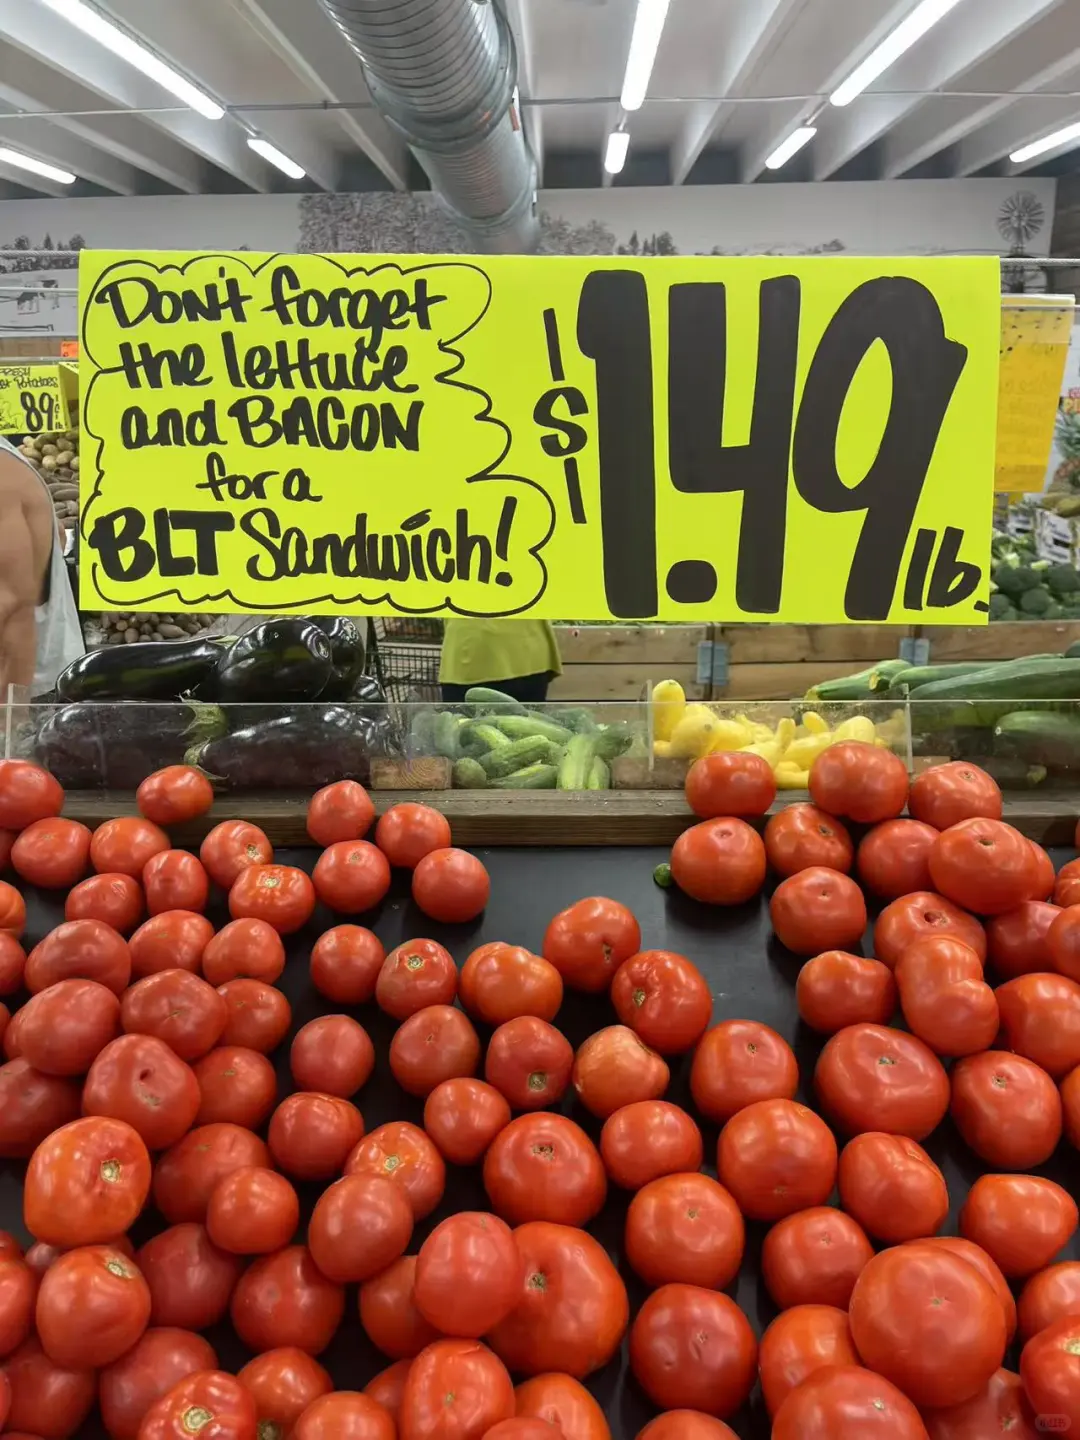 Don't forget
the lettuce
and BACON
for a
BLT Sandwich!
$1.49 lb.
FRESH
Potatoes
89¢